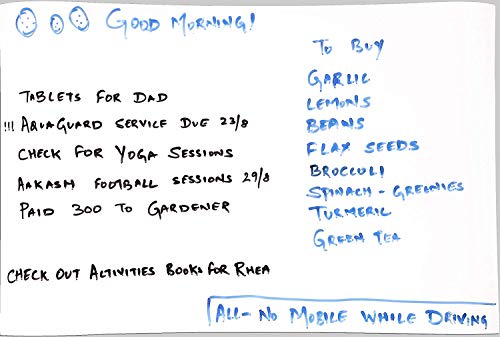 Good Morning!
Tablets for Dad
!!! AquaGuard service due 23/8
Check for Yoga Sessions
Aakash football sessions 29/8
Paid 300 to Gardener
Check out Activities Books for Rhea
To Buy
Garlic
Lemons
Beans
Flax seeds
Broccoli
Spinach - Greenies
Turmeric
Green Tea
All - No Mobile while driving